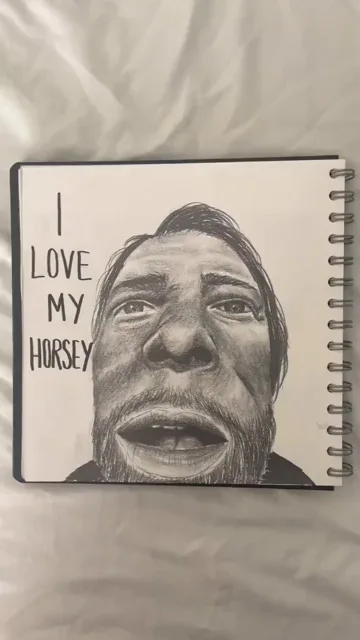 I
LOVE
MY
HORSEY